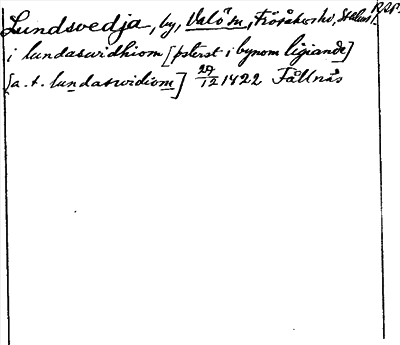 Lundsvedja, by, Valö sn, Frösåkers hd, Stholms l. R.A.P.
i lundaswidhiom [psterst i bynom ligiande]
[a. t. lundaswidiom] 27/12 1422 Fållnäs